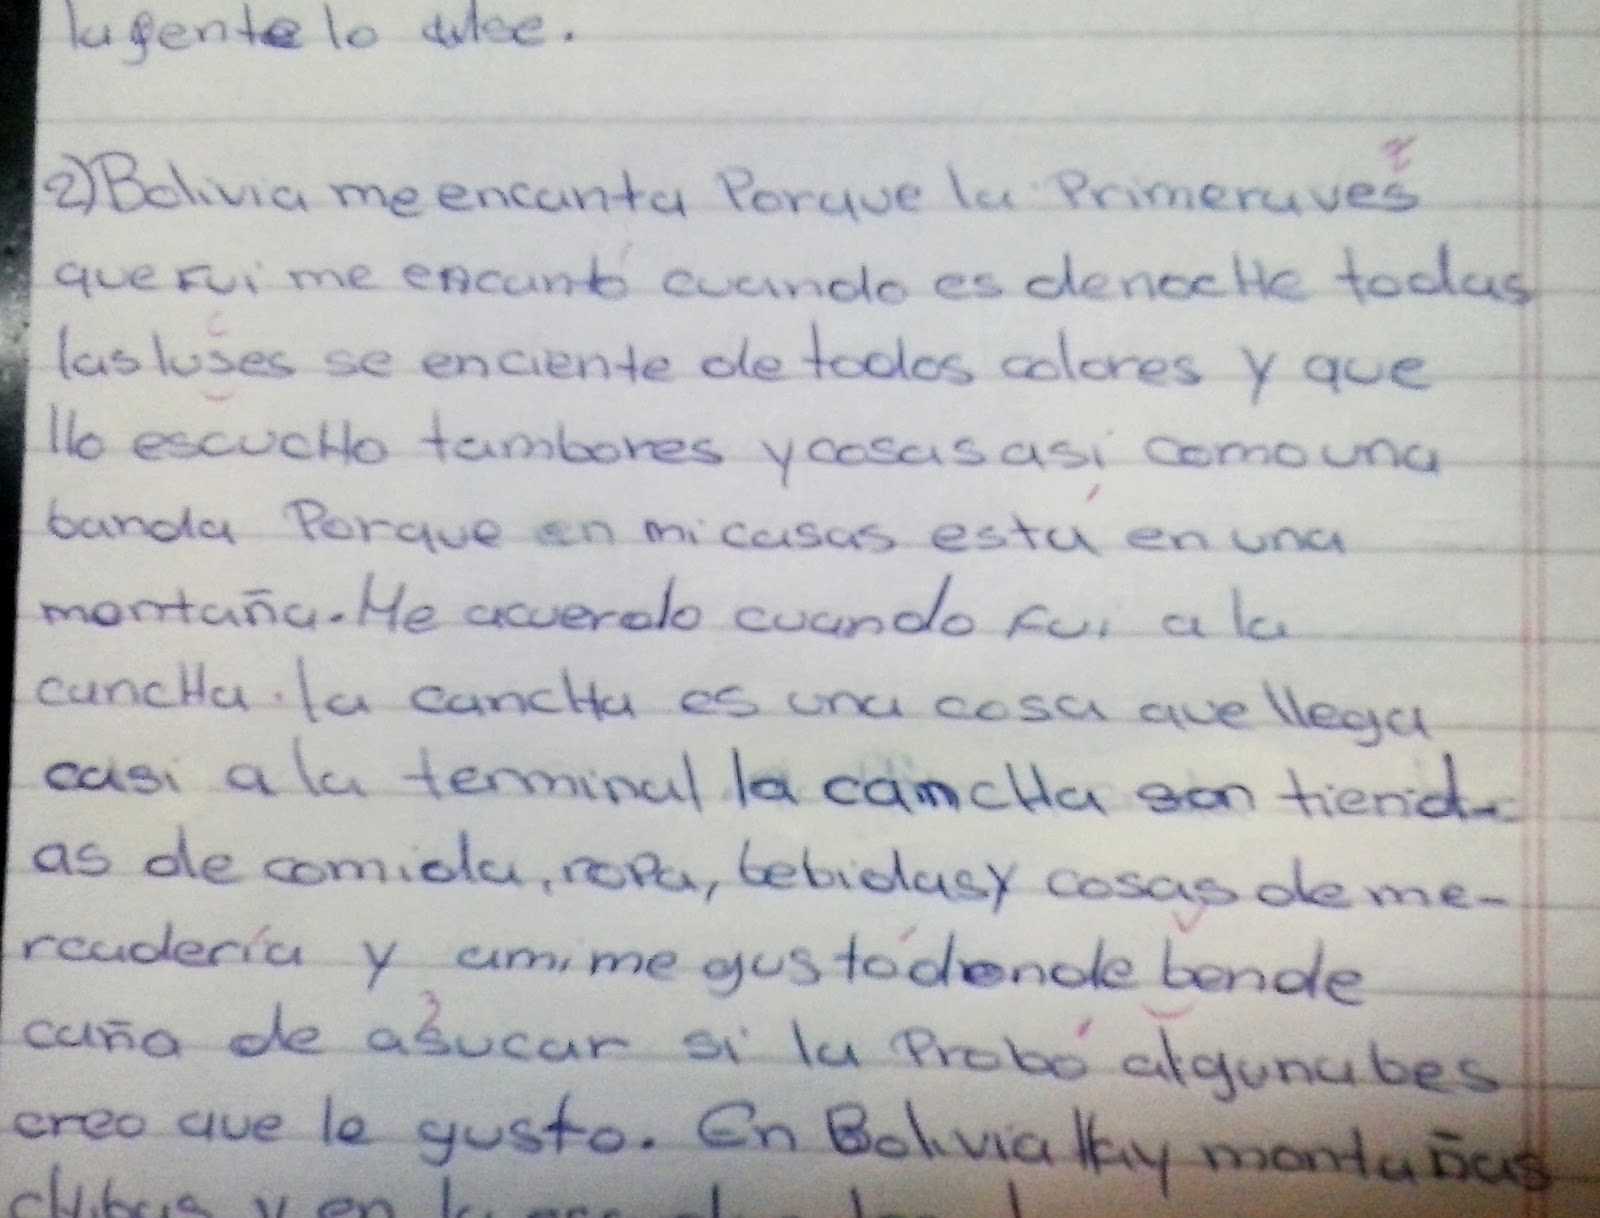 la gente lo dice.
2) Bolivia me encanta Porque la Primera ves
que Fui me encantó cuando es de nocHe todas
las luses se enciente de todos colores y que
llo escucHo tambores y cosas así como una
banda Porque en mi casas está en una
montaña. Me acuerdo cuando Fui a la
cancHa. la cancHa es una cosa que llega
casi a la terminal la cancHa son tiend-
as de comida, ropa, bebidas y cosas de me-
rcadería y a mi me gustó donde bende
caña de asucar si la Probó alguna bes
creo que le gusto. En Bolivia Hay montañas
y en